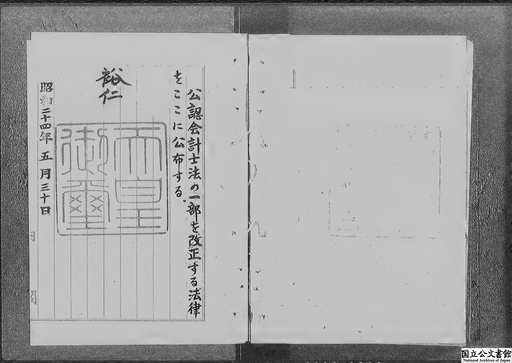 公認会計士法の一部を改正する法律
をここに公布する。
裕仁
天皇
御璽
昭和二十四年五月三十日
国立公文書館
National Archives of Japan